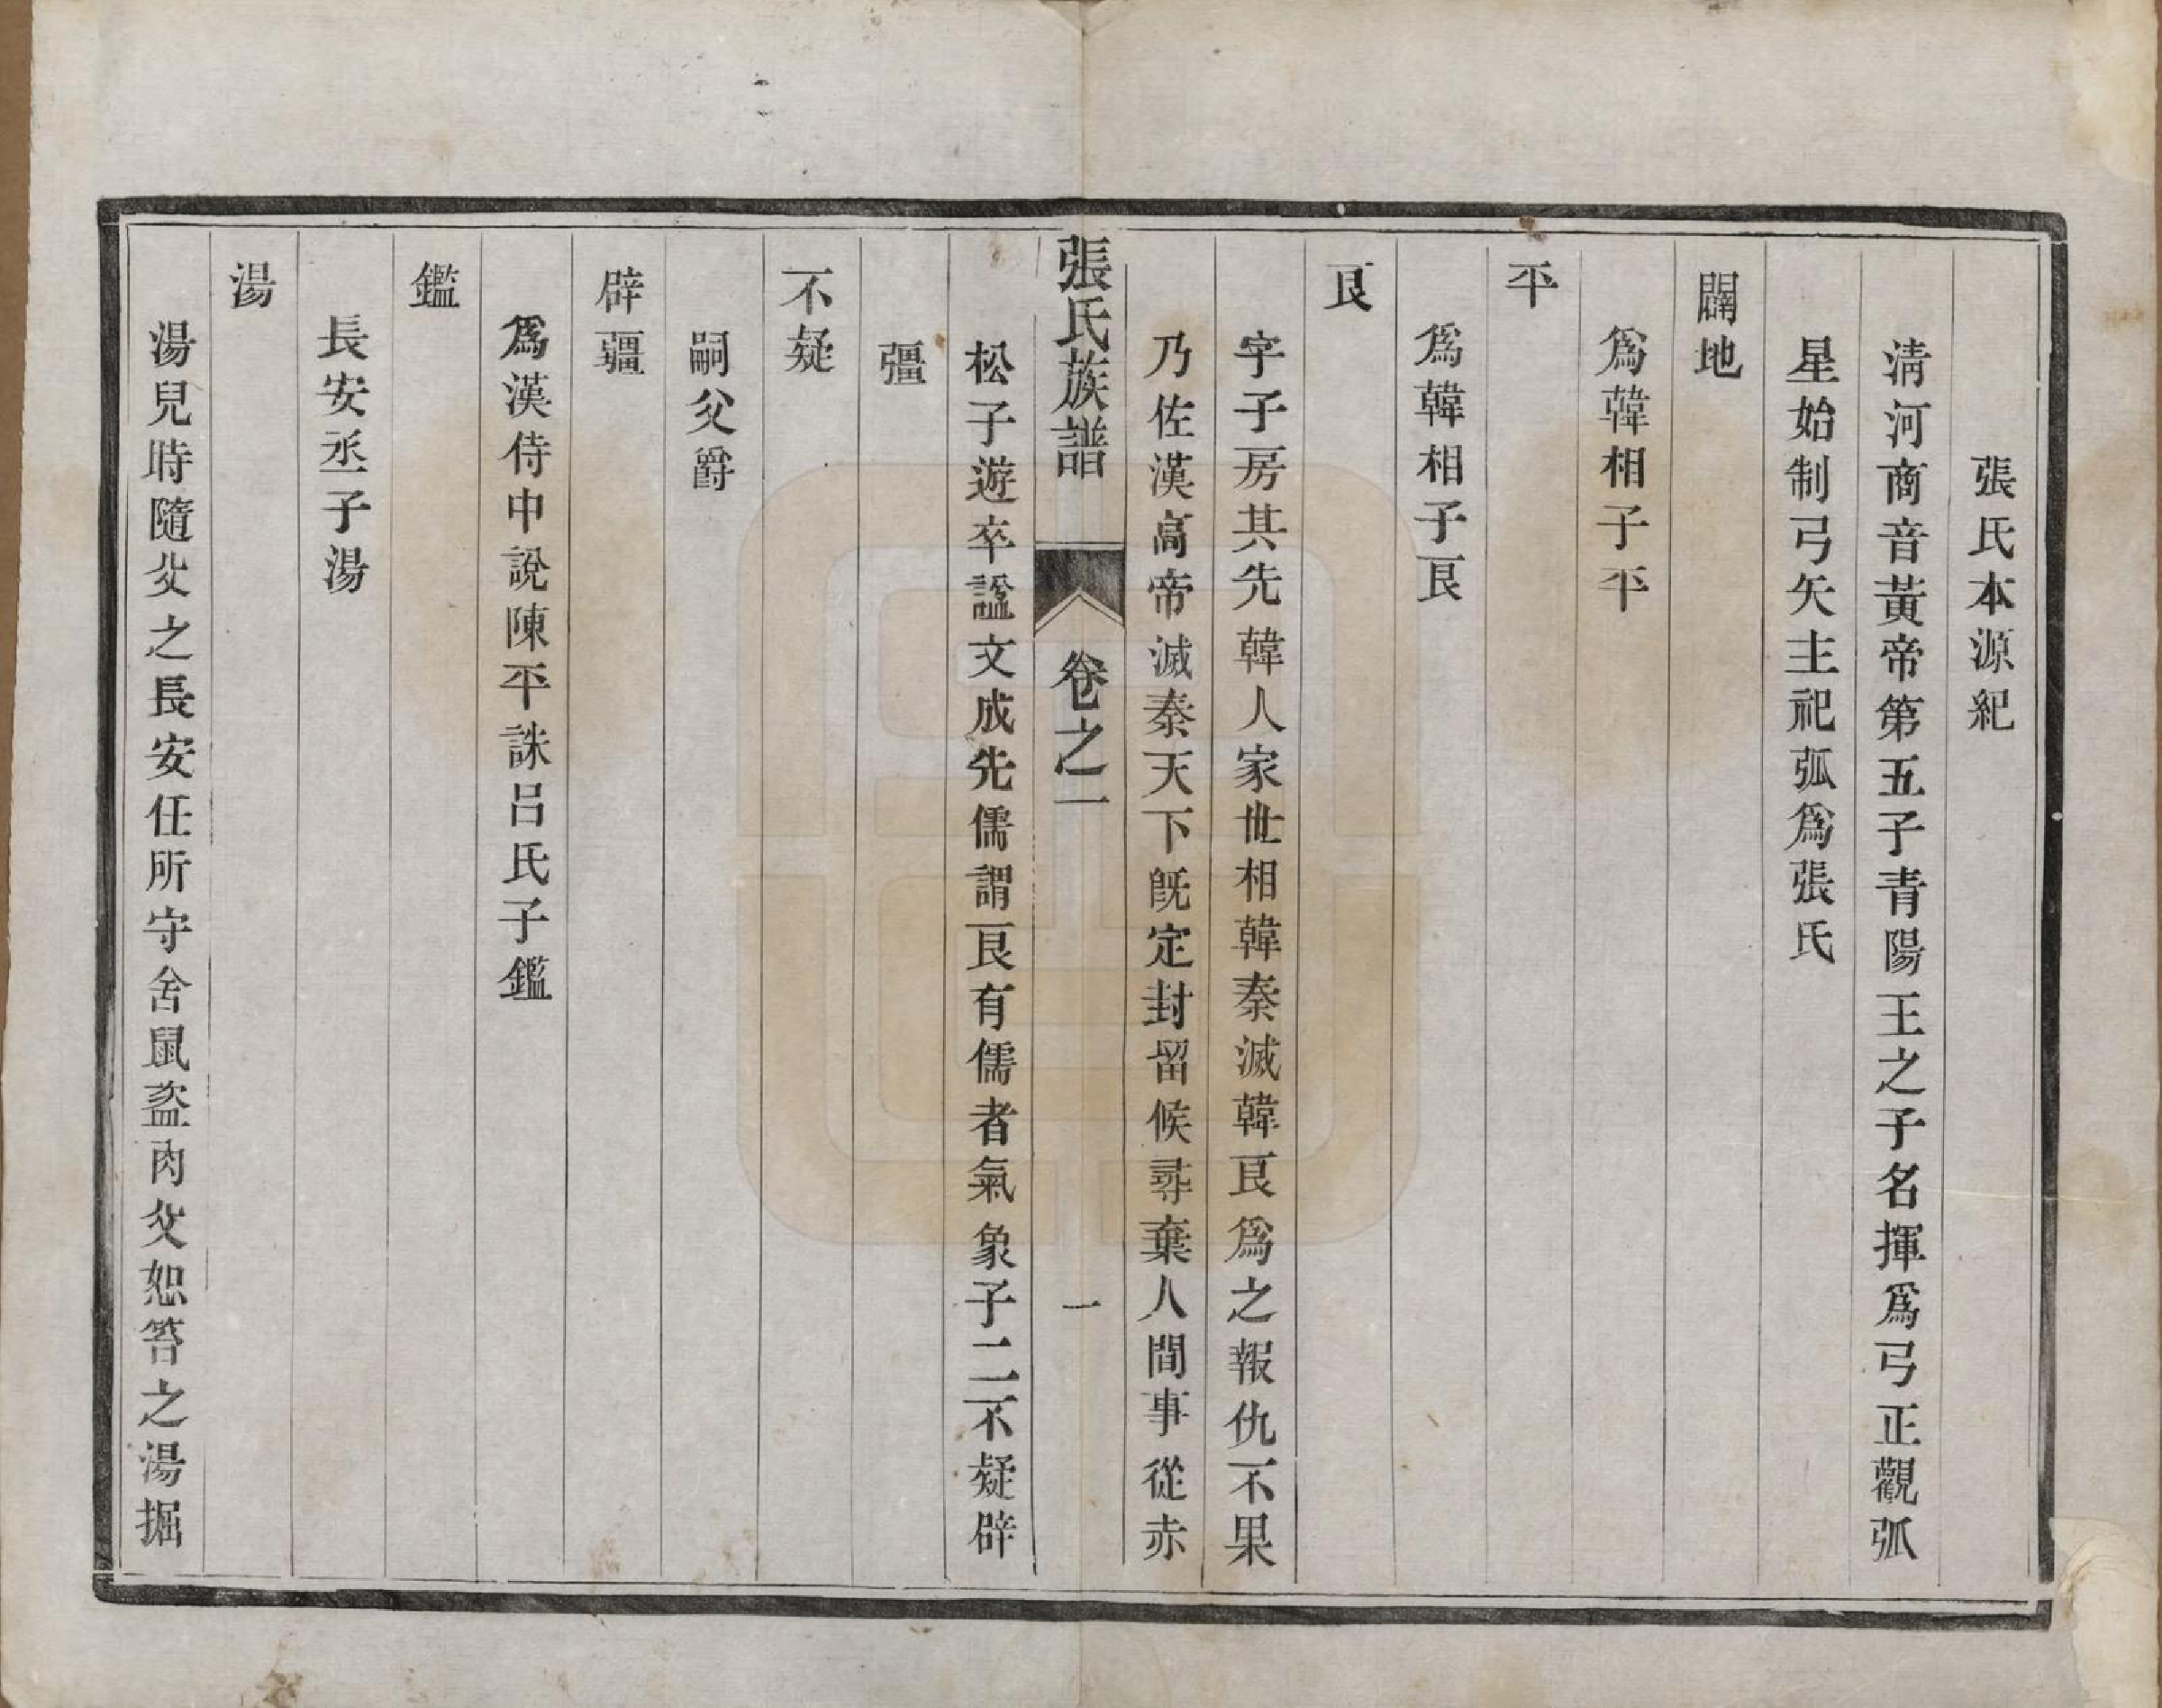 張氏本源紀
淸河商音黃帝第五子青陽王之子名揮爲弓正觀弧
星始制弓矢主祀弧爲張氏
闢地
爲韓相子平
平
爲韓相子良
良
字子房其先韓人家世相韓秦滅韓良爲之報仇不果
乃佐漢高帝滅秦天下旣定封留候尋棄人間事從赤
張氏族譜 卷之一 一
松子遊卒諡文成先儒謂良有儒者氣象子二不疑辟
彊
不疑
嗣父爵
辟疆
爲漢侍中說陳平誅呂氏子鑑
鑑
長安丞子湯
湯
湯兒時隨父之長安任所守舍鼠盜肉父怒笞之湯掘